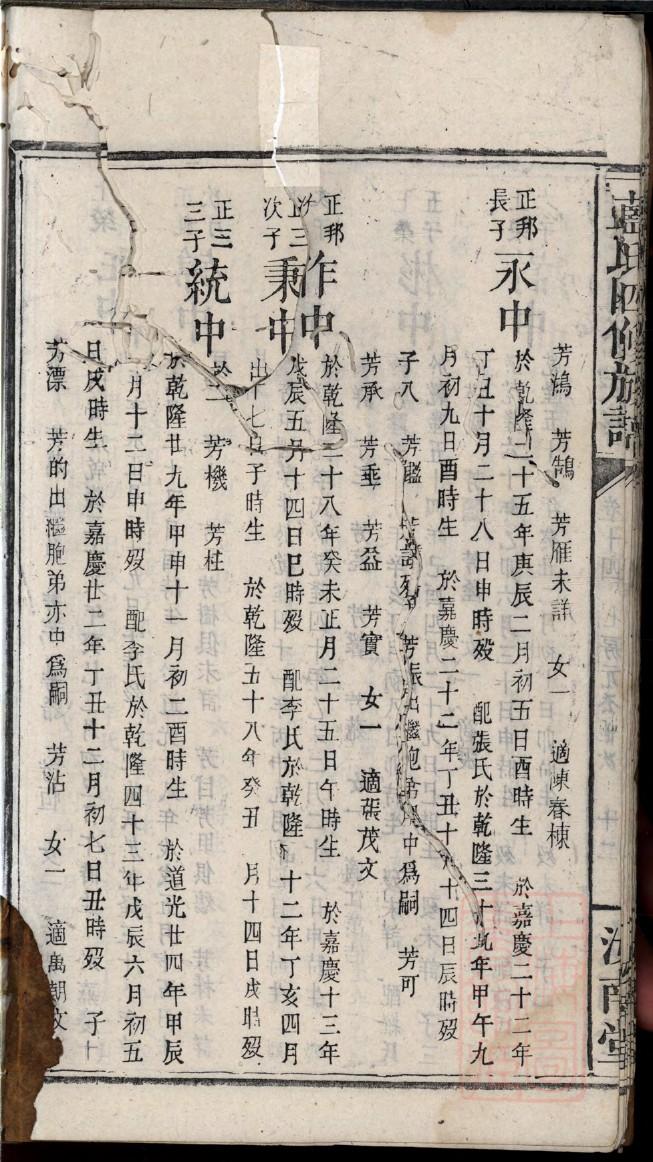 藍氏四修族譜
芳鴻 芳鵠 芳雁未詳 女一 適陳春棟
正邦長子
永中
於乾隆二十五年庚辰二月初五日酉時生 於嘉慶二十二年
丁丑十月二十八日申時殁 配張氏於乾隆三十九年甲午九
月初九日酉時生 於嘉慶二十二年丁丑十 十四日辰時歿
子八 芳 芳 芳振出繼胞弟 中爲嗣 芳可
芳承 芳垂 芳益 芳實 女一 適張茂文
正邦次子
作中
於乾隆二十八年癸未正月二十五日午時生 於嘉慶十三年
戊辰五月十四日巳時歿 配李氏於乾隆 十二年丁亥四月
正三次子
秉中
出 十七 子時生 於乾隆五十八年癸丑 月十四日戌時歿
正三三子
統中
於 二 芳機 芳桂
於乾隆廿九年甲申十一月初二酉時生 於道光廿四年甲辰
月十二日申時歿 配李氏於乾隆四十三年戊辰六月初五
日戌時生 於嘉慶廿二年丁丑十二月初七日丑時歿 子十
芳漂 芳的出繼胞弟亦中爲嗣 芳沾 女一 適萬朝文
汝南堂